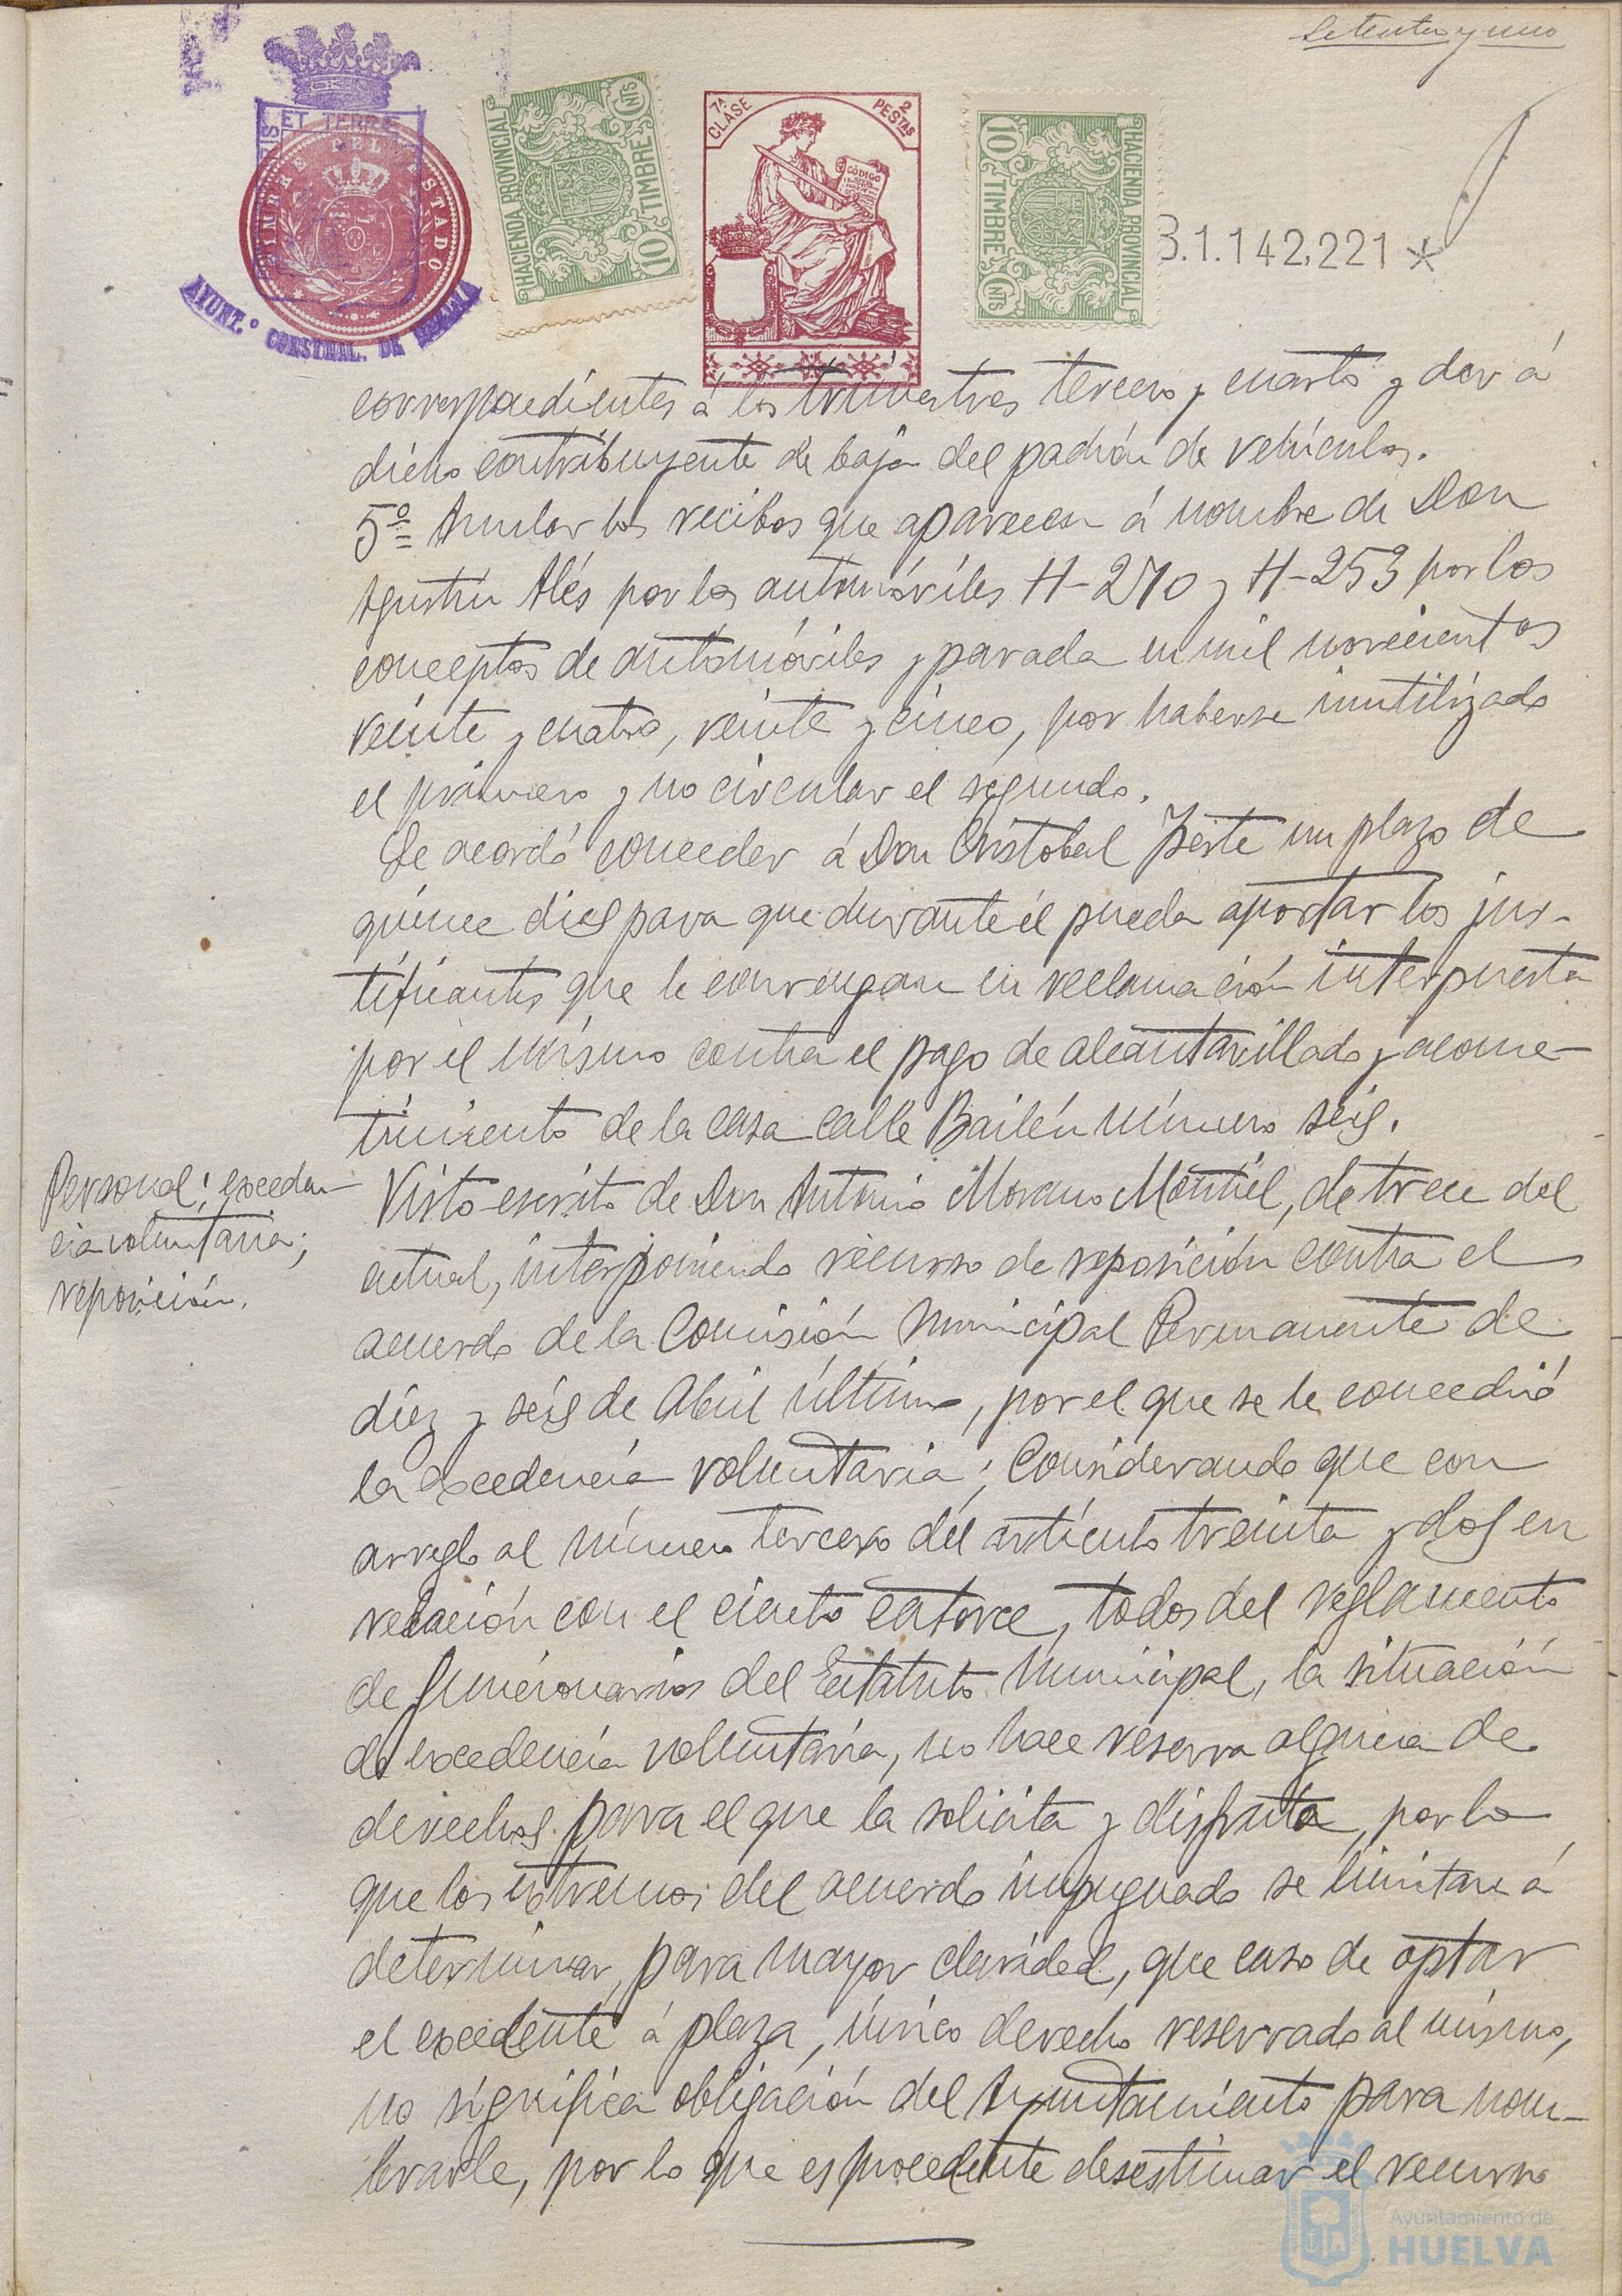 Setenta y uno
ET TERRE
TIMBRE DEL ESTADO
AYUNT.º CONSTNAL. DE HUELVA
HACIENDA PROVINCIAL
TIMBRE
10 CNTS
7ª CLASE
2 PESTAS
CÓDIGO
HACIENDA PROVINCIAL
TIMBRE
10 CNTS
B.1.142,221 *
correspondientes á los trimestres tercero y cuarto y dar á
dicho contribuyente de baja del padrón de vehículos.
5º Anular los recibos que aparecen á nombre de Don
Agustín Alés por los automóviles H-270 y H-253 por los
conceptos de automóviles y parada en mil novecientos
veinte y cuatro, veinte y cinco, por haberse inutilizado
el primero y no circular el segundo.
Se acordó conceder á Don Cristobal un plazo de
quince dias para que durante él pueda aportar los jus-
tificantes que le convengan en reclamación interpuesta
por el mismo contra el pago de alcantarillado y acome-
timiento de la casa calle Bailén número seis.
Personal; exceden-
cia voluntaria;
reposición.
Visto escrito de Don Antonio Moreno Montiel, de trece del
actual, interponiendo recurso de reposición contra el
acuerdo de la Comisión Municipal Permanente de
diez y seis de Abril último, por el que se le concedió
la excedencia voluntaria; Considerando que con
arreglo al número tercero del artículo treinta y dos en
relación con el ciento catorce, todos del reglamento
de funcionarios del Estatuto Municipal, la situación
de excedencia voluntaria, no hace reserva alguna de
derechos para el que la solicita y disfruta, por lo
que los extremos del acuerdo impugnado se limitan á
determinar, para mayor claridad, que caso de optar
el excedente á plaza, único derecho reservado al mismo,
no significa obligación del Ayuntamiento para nom-
brarle, por lo que es procedente desestimar el recurso
Ayuntamiento de
HUELVA